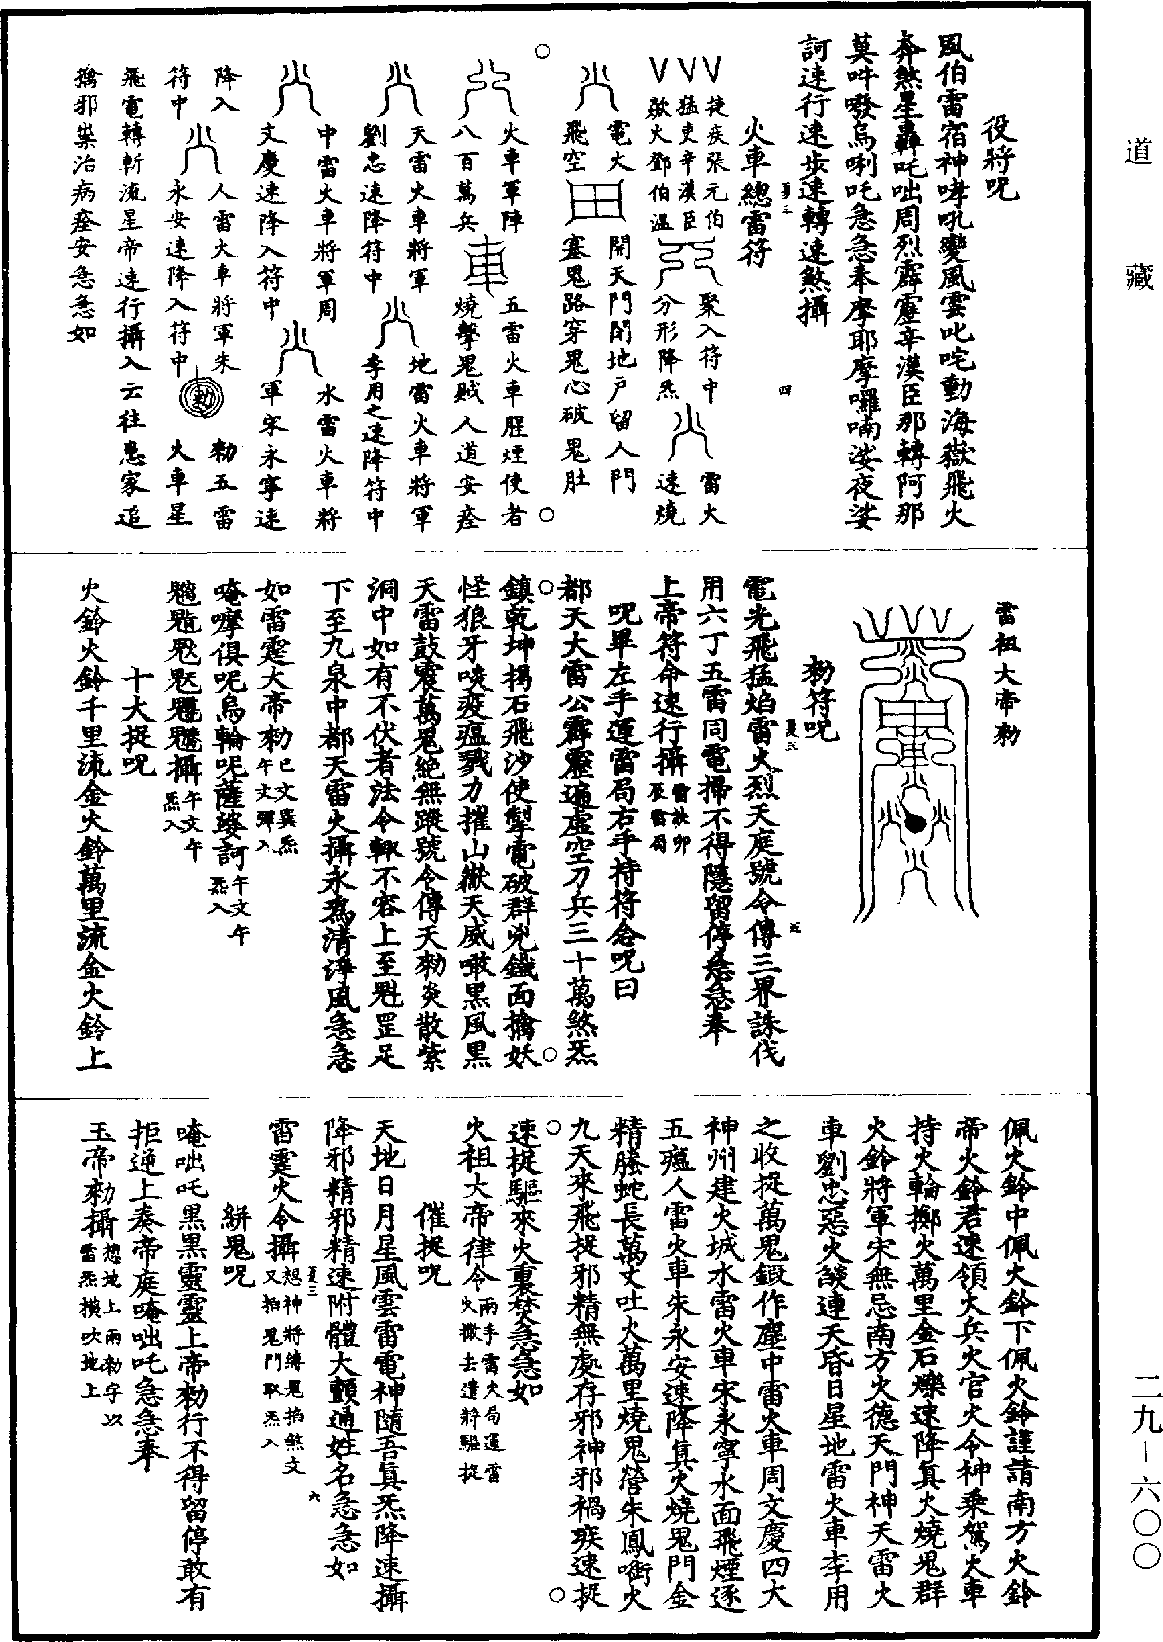 道藏
役將呪
風伯雷宿神哮吼變風雲叱咤動海嶽飛火
奔煞星轟吒咄周烈霹靂辛漢臣那轉阿那
莫吽㗶烏唎吒急急奉摩耶摩囉喃娑夜娑
訶速行速步速轉速煞攝
火車總雷符
捷疾張元伯
猛吏辛漢臣
歘火鄧伯溫
聚入符中
分形降炁
雷火
速燒
電火
飛空
開天門閉地戶留人門
塞鬼路穿鬼心破鬼肚
火車軍陣
八百萬兵
五雷火車腥煙使者
燒擊鬼賊人道安痊
天雷火車將軍
劉忠速降符中
地雷火車將軍
李用之速降符中
中雷火車將軍周
文慶速降入符中
水雷火車將
軍宋永寧速
降入
符中
人雷火車將軍朱
永安速降入符中
勑
勑五雷
火車星
飛電轉斬流星帝速行攝入云往患家追
擒邪祟治病痊安急急如
雷祖大帝勑
勑符呪
電光飛猛焰雷火烈天庭號令傳三界誅伐
用六丁五雷同電掃不得隱留停急急奉
上帝符命速行攝
呪畢左手運雷局右手持符念呪曰
都天大雷公霹靂遍虛空刀兵三十萬煞炁
鎮乾坤揚石飛沙使掣電破群兇鐵面擒妖
怪狼牙唆疫瘟戮力摧山嶽天威噉黑風黑
天雷鼓震萬鬼絕無蹤號令傳天勑炎散紫
洞中如有不伏者法令輒不容上至魁罡足
下至九泉中都天雷火攝永爲清淨風急急
如雷霆大帝勑巳文巽炁
午文彈入
唵㘈俱呢烏輪呢薩婆訶午文午
炁入
攝午文午
炁入
十大捉呪
火鈴火鈴千里流金火鈴萬里流金火鈴上
佩火鈴中佩火鈴下佩火鈴謹請南方火鈴
帝火鈴君速領火兵火官火令神乘駕火車
持火輪擲火萬里金石爍速降真火燒鬼群
火鈴將軍宋無忌南方火德天門神天雷火
車劉忠惡火燄連天昏日星地雷火車李用
之收捉萬鬼鍜作塵中雷火車周文慶四大
神州建火城水雷火車宋永寧水面飛煙逐
五瘟人雷火車朱永安速降真火燒鬼門金
精螣蛇長萬丈吐火萬里燒鬼營朱鳳嘶火
九天來飛捉邪精無處存邪神邪禍疾速捉
速捉驅來火裏焚急急如
火祖大帝律令兩手雷火局運雷
火撒去遣將驅捉
催捉呪
天地日月星風雲雷電神隨吾真炁降速攝
降邪精邪精速附體大顫通姓名急急如
雷霆火令攝想神將縛鬼掐煞文
又拍鬼門取炁入
絣鬼呪
唵咄吒黑黑靈靈上帝勑行不得留停敢有
拒逆上奏帝庭唵咄吒急急奉
玉帝勑攝想地上兩勑字以
雷炁橫吹地上
二九－六〇〇